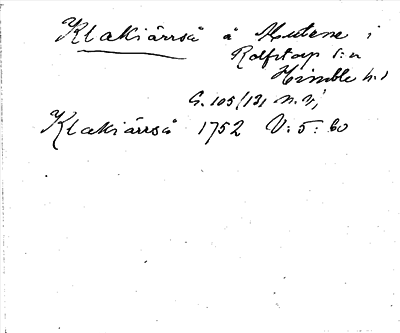 Klakiärrså å Mutene i
Rolfstorp s:n
Himble h.d
G. 105/131 n.v,
Klakiärrså 1752 V: 5: 60